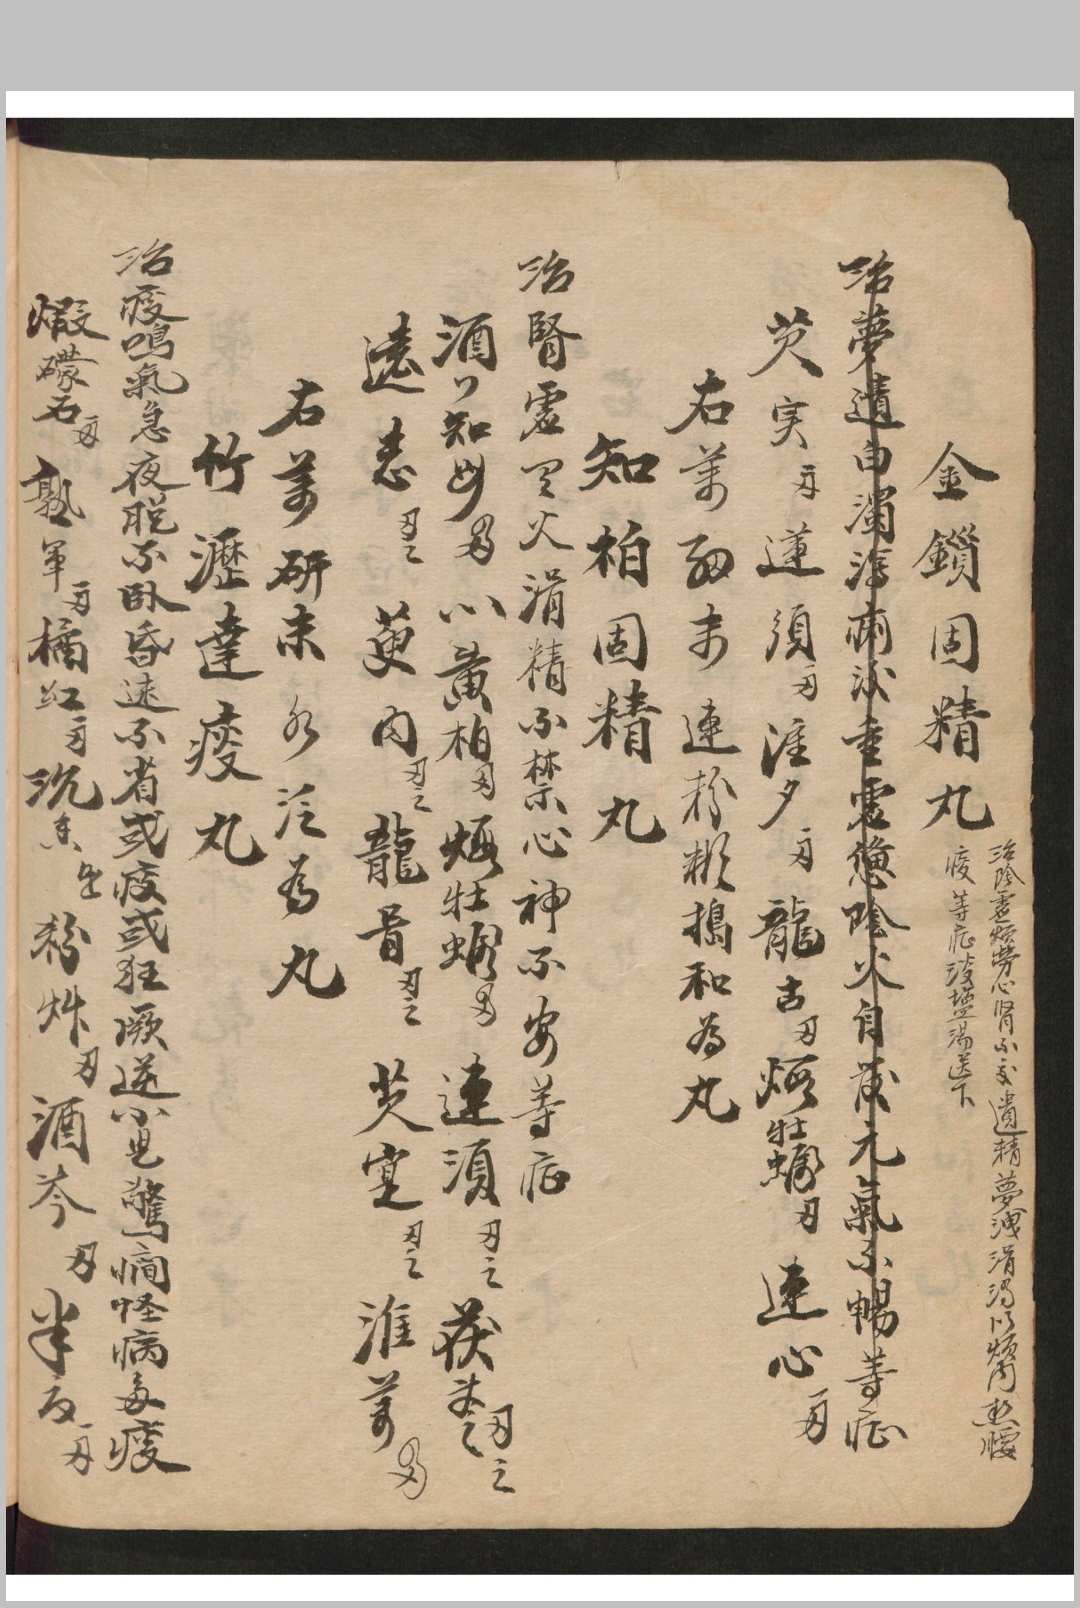 金鎖固精丸
治陰虛煩勞心腎不交遺精夢洩涓濁以煩內熱腰
痠等症淡塩湯送下
治夢遺白濁瀉痢汲重虛憊陰火自发元氣不暢等症
芡实 蓮須 淮夕 龍古 煅牡蠣 連心
右萬細末連粉糊搗和為丸
知柏固精丸
治腎虛火涓精不禁心神不安等症
酒炒知母 八黃柏 煅牡蠣 連須 茯苓
遠志 萸肉 龍骨 芡寔 淮药
右药研末水泛為丸
竹瀝達痰丸
治痰鳴氣急夜脱不臥昏迷不省或痰或狂厥逆小児驚癇怪病多痰
煅礞石 熟軍 橘紅 沉香 粉草 酒芩 半夏